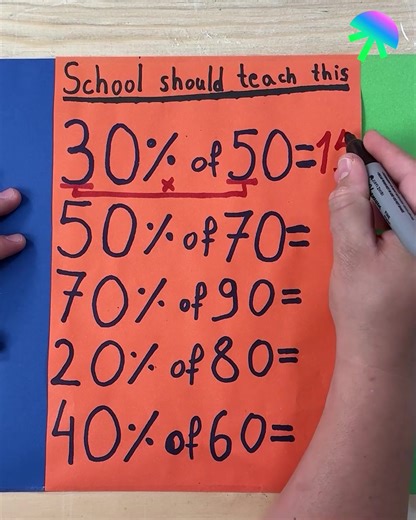 School should teach this
30% of 50=15
×
50% of 70=
70% of 90=
20% of 80=
40% of 60=